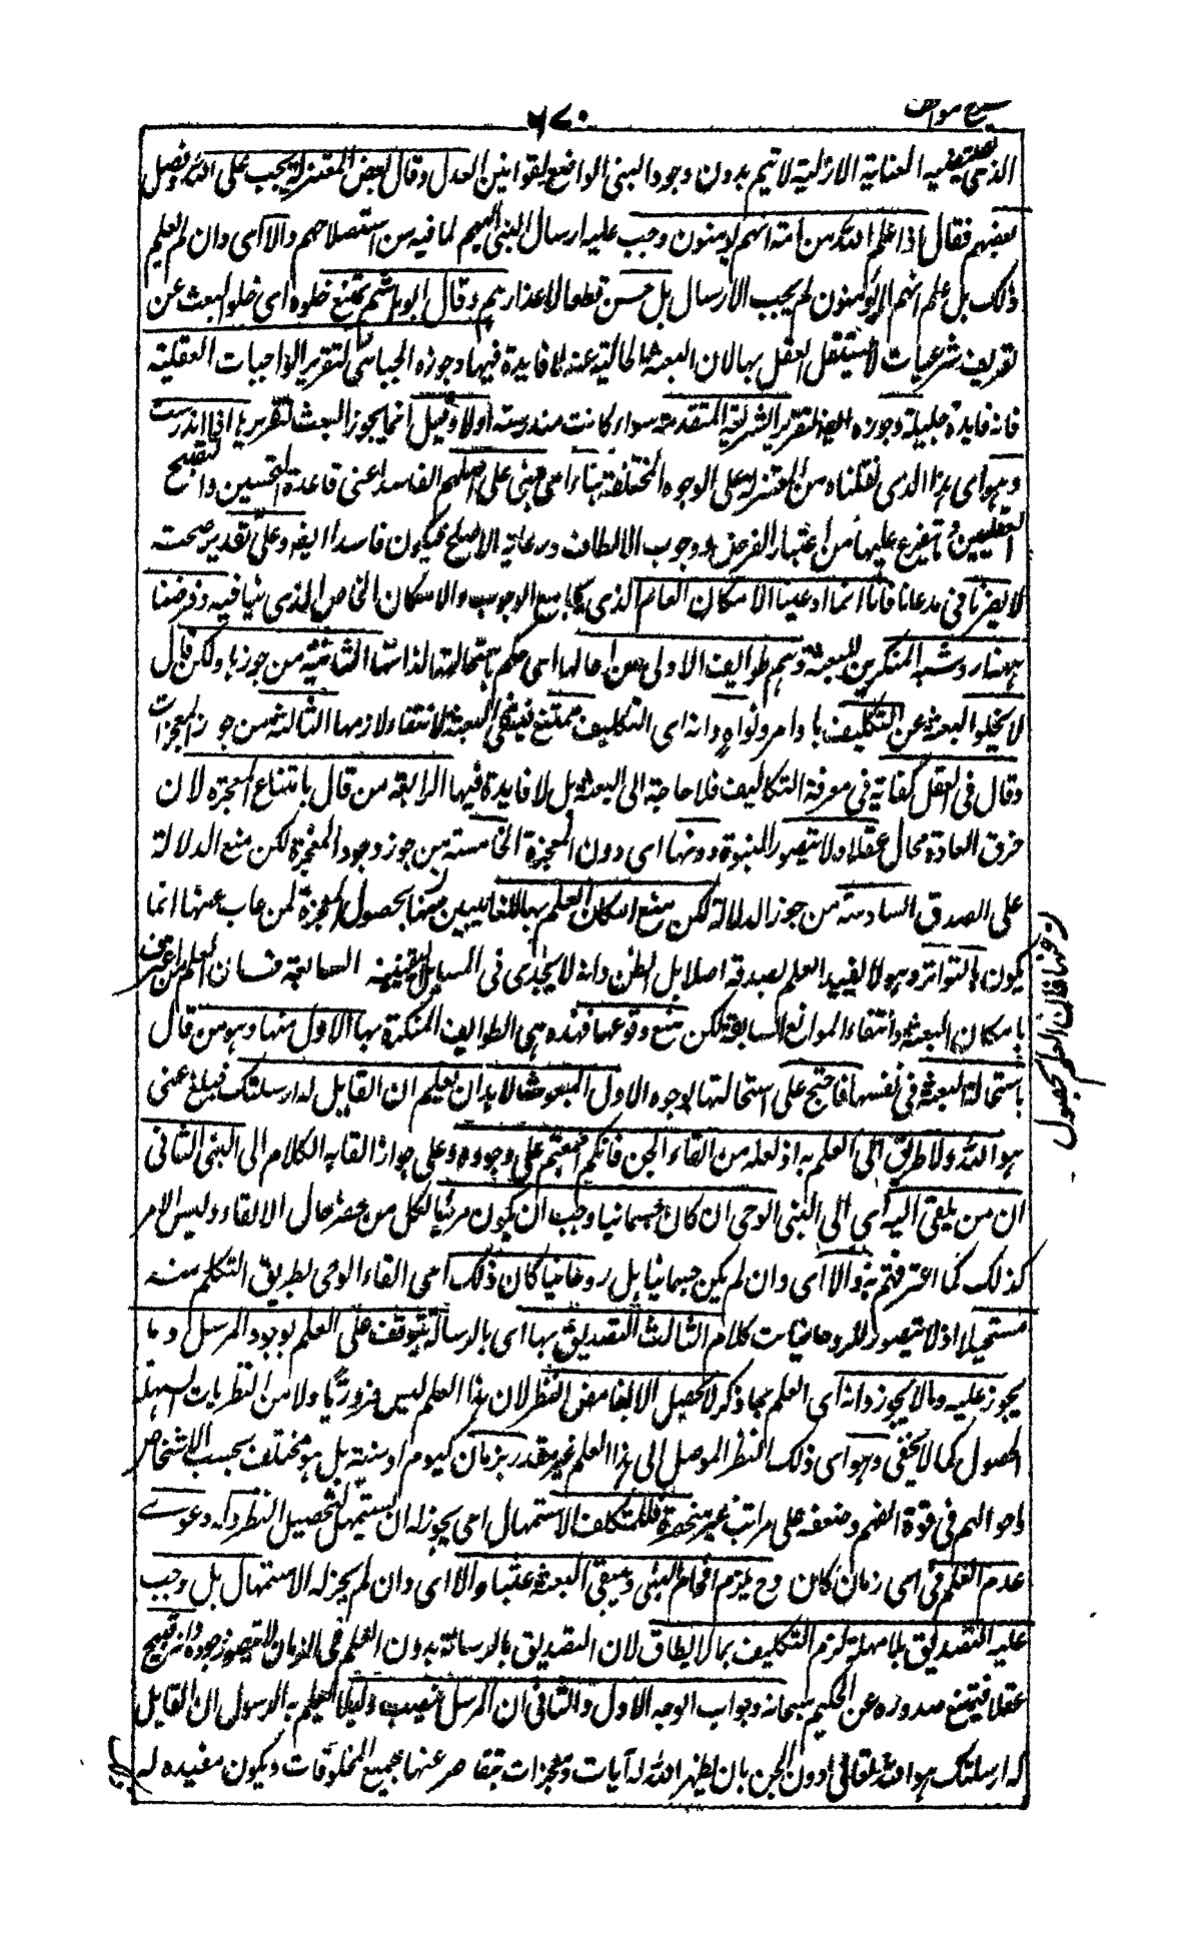 شرح مواقف
٦٧٠
الذي تقتضيه العناية الازلية لا تتم بدون وجود النبي الواضع لقوانين العدل وقال بعض المعتزلة يجب على الله وفصل
بعضهم فقال اذا علم الله من امة انهم يومنون وجب عليه ارسال النبي اليهم لما فيه من استصلاحهم والا اى وان لم يعلم
ذلك بل علم انهم لا يؤمنون لم يجب الارسال بل حسن قطعا لاعذارهم وقال ابو هاشم يمتنع خلوه اى خلو البعث عن
تعريف شرعيات لا يستقل العقل بها لان البعثة الخالية عنه لا فايدة فيها وجوزه الجبائي لتقرير الواجبات العقلية
فانه فايدة جليلة وجوزه ايضا لتقرير الشريعة المتقدمة سواء كانت مندرسة اولا وقيل انما يجوز البعث لتقريرها اذا اندرست
وهو اى هذا الذى نقلناه من المعتزلة على الوجوه المختلفة بناء اى مبنى على اصلهم الفاسد اعنى قاعدة التحسين والتقبيح
العقليين وما يتفرع عليها من اعتبار الغرض ووجوب الالطاف ورعاية الاصلح فيكون فاسدا ايضا وعلى تقدير صحته
لا يضرنا فى مدعانا فانا انما ادعينا الامكان العام الذى يجامع الوجوب والامكان الخاص الذى ينافيه وغرضنا
ههنا رد شبه المنكرين للبعثة وهم طوايف الاولى من احالها اى حكم باستحالتها لذاتها الثانية من جوزها ولكن قال
لا يخلو البعثة عن التكليف باوامر ونواه وانه اى التكليف ممتنع فينتفى البعثة لانتفاء لازمها الثالثة من جوز المعجزات
وقال فى العقل كفاية فى معرفة التكاليف فلا حاجة الى البعثة بل لا فايدة فيها الرابعة من قال بامتناع المعجزة لان
خرق العادة محال عقلا ولا يتصور النبوة دونها اى دون المعجزة الخامسة من جوز وجود المعجزة لكن منع الدلالة
على الصدق السادسة من جوز الدلالة لكن منع امكان العلم بها للغايبين عنها بحصول المعجزة لمن غاب عنها انما
يكون بالتواتر وهو لا يفيد العلم بصدقه اصلا بل الظن وانه لا يجدى فى المسايل اليقينية السابعة من اعترف
بامكان البعثة وانتفاء الموانع السابقة لكن منع وقوعها فهذه هى الطوايف المنكرة بها الاول منها وهو من قال
باستحالة البعثة فى نفسها فاحتج على استحالتها بوجوه الاول المبعوث لا بد ان يعلم ان القايل له ارسلتك فبلغ عنى
هو الله ولا طريق الى العلم به اذ لعله من القاء الجن فانكم اجمعتم على وجوده وعلى جواز القايه الكلام الى النبى الثانى
ان من يلقى اليه اى الى النبى الوحى ان كان جسمانيا وجب ان يكون مرئيا لكل من حضر حال الالقاء وليس الامر
كذلك كما اعترفتم به والا اى وان لم يكن جسمانيا بل روحانيا كان ذلك اى القاء الوحى بطريق التكلم منه
مستحيلا اذ لا يتصور للروحانيات كلام الثالث التصديق بها اى بالرسالة يتوقف على العلم بوجود المرسل وما
يجوز عليه وما لا يجوز وانه اى العلم بما ذكر لا يحصل الا بغامض النظر لان هذا العلم ليس ضروريا ولا من النظريات السهلة
الحصول كما لا يخفى وهو اى ذلك النظر الموصل الى هذا العلم غير مقدر بزمان كيوم او سنة بل هو مختلف بحسب الاشخاص
واحوالهم فى قوة الفهم وضعفه على مراتب غير منحصرة فللمكلف الاستمهال اى يجوز له ان يستمهل لتحصيل النظر وله دعوى
عدم العلم فى اى زمان كان وح يلزم افحام النبى ويبقى البعثة عبثا والا اى وان لم يجز له الاستمهال بل وجب
عليه التصديق بلا مهلة لزم التكليف بما لا يطاق لان التصديق بالرسالة بدون العلم فى الزمان لا يتصور وجوده وانه قبيح
عقلا فيمتنع صدوره عن الحكيم سبحانه وجواب الوجه الاول والثانى ان المرسل ينصب دليلا ليعلم به الرسول ان القايل
له ارسلتك هو الله تعالى دون الجن بان يظهر الله له آيات ومعجزات يتقاصر عنها جميع المخلوقات ويكون مفيدة له
فان العلم بحصول